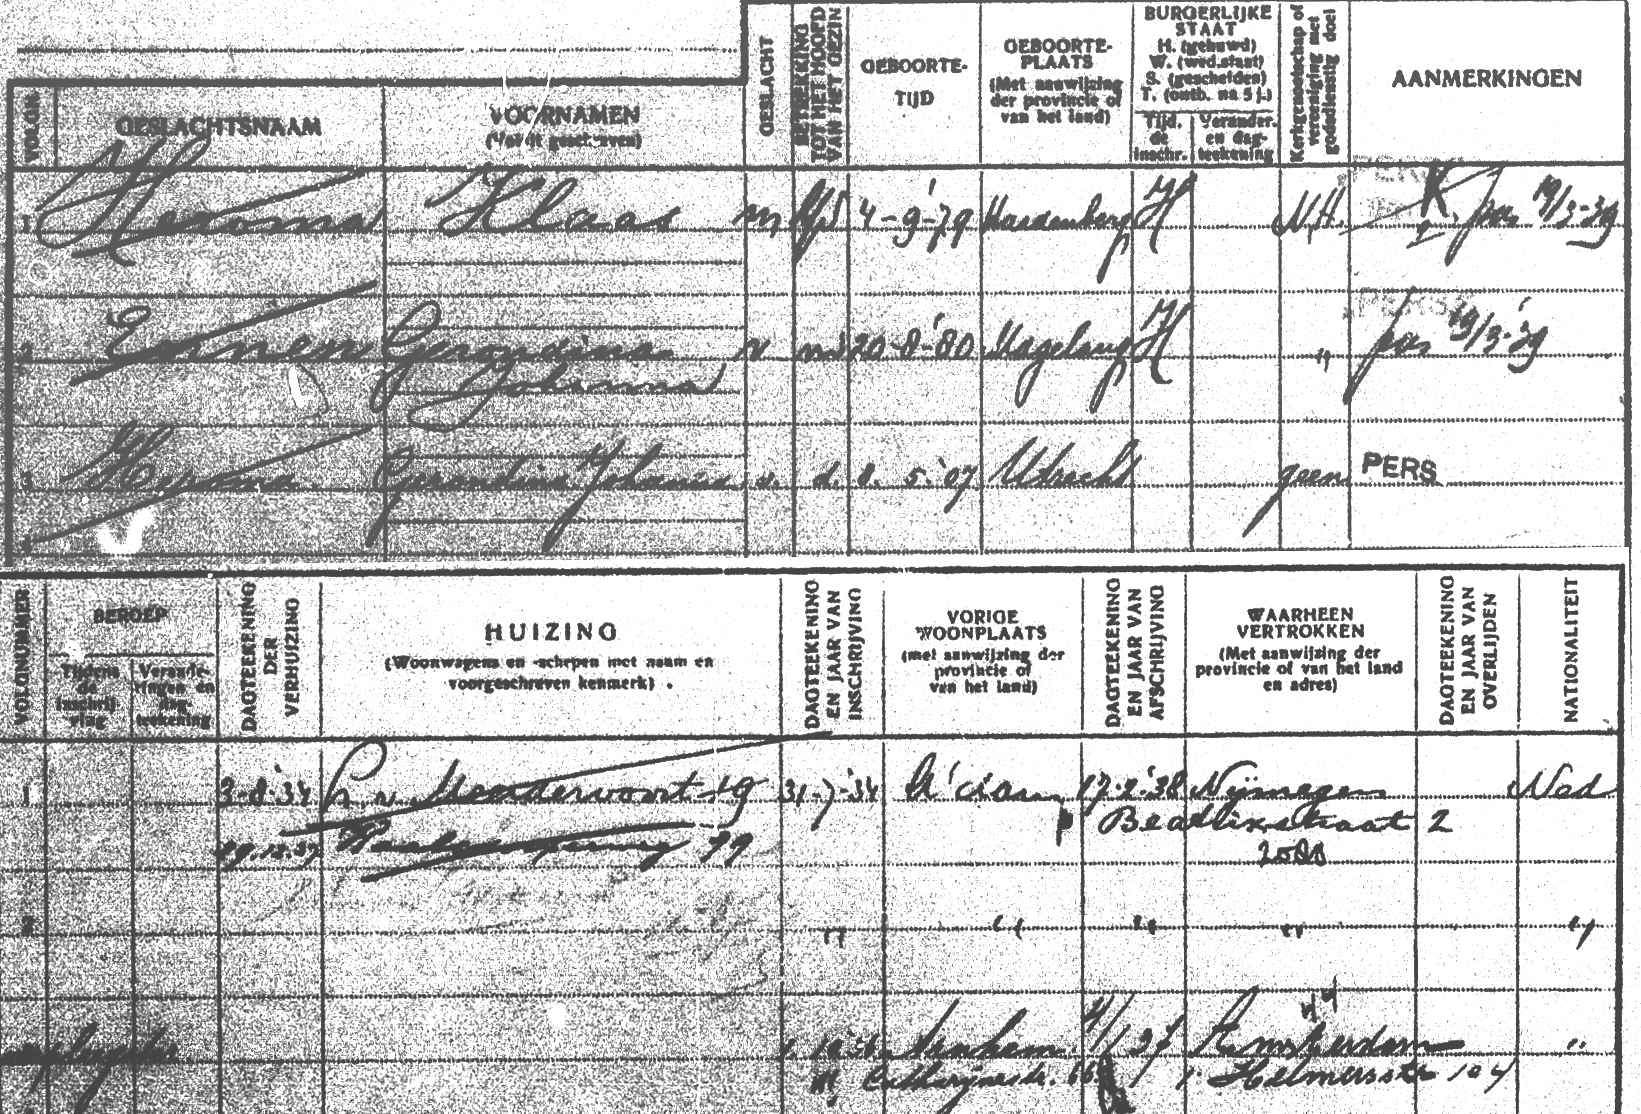 VOLGN.
GESLACHTSNAAM
VOORNAMEN
GESLACHT
BETREKKING TOT HET HOOFD VAN HET GEZIN
GEBOORTE-
TIJD
GEBOORTE-
PLAATS
(Met aanwijzing
der provincie of
van het land)
BURGERLIJKE
STAAT
H. (gehuwd)
W. (wed.staat)
S. (gescheiden)
T. (ontb. na 5 j.)
Tijd.
de
inschr.
Verander.
en dag-
teekening
Kerkgenootschap of
vereeniging met
godsdienstig doel
AANMERKINGEN
1 Heroma Klaas m 4-9-'79 Hardenberg H N.H. K 19/3-'39
2 Gerardina v 20-8-'80 Magelang H " 19/3-'39
Johanna
3 Heroma Gerardina Johanna v. d. 8. 5. '07 Utrecht geen PERS
4
VOLGNUMMER
BEROEP
Tijdens
de
inschrij
ving
Verande-
ringen en
dag
teekening
DAGTEEKENING
DER
VERHUIZING
HUIZING
(Woonwagens en -schepen met naam en
voorgeschreven kenmerk)
DAGTEEKENING
EN JAAR VAN
INSCHRIJVING
VORIGE
WOONPLAATS
(met aanwijzing der
provincie of
van het land)
DAGTEEKENING
EN JAAR VAN
AFSCHRIJVING
WAARHEEN
VERTROKKEN
(Met aanwijzing der
provincie of van het land
en adres)
DAGTEEKENING
EN JAAR VAN
OVERLIJDEN
NATIONALITEIT
1 3-8-'34 L. v. Meerdervoort 19 31-7-'34 A'dam 17-2-'38 Nijmegen Ned
Beatrixstraat 2
29.12.37 99
2 " " " " "
Arnhem Amsterdam "
Catharijnestr. Helmersstr 104